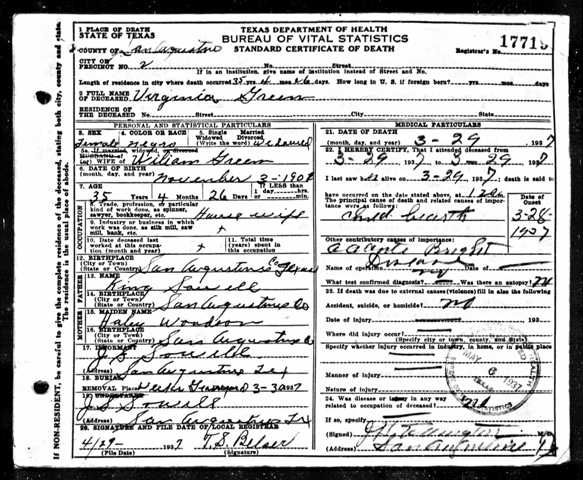 1 PLACE OF DEATH
STATE OF TEXAS
TEXAS DEPARTMENT OF HEALTH
BUREAU OF VITAL STATISTICS
STANDARD CERTIFICATE OF DEATH
COUNTY OF San Augustine
Registrar's No. 17719
CITY OR
PRECINCT NO. 2 No. Street
If in an institution, give name of institution instead of Street and No.
Length of residence in city where death occurred yrs. mos. days. How long in U. S. if foreign born? yrs. mos. days
2 FULL NAME
OF DECEASED Virginia Green
RESIDENCE OF
THE DECEASED No. Street City State
PERSONAL AND STATISTICAL PARTICULARS
3. SEX 4. COLOR OR RACE 5. Single Married
Widowed Divorced
(Write the word)
Female negro Widowed
5a. If married, widowed or divorced
HUSBAND of
(or) WIFE of William Green
6. DATE OF BIRTH
(month, day, and year) November 3-190
7. AGE If less than
35 Years 4 Months 26 Days
8. Trade, profession, or particular
kind of work done, as spinner,
sawyer, bookkeeper, etc. House wife
9. Industry or business in
which work was done, as silk mill, saw
mill, bank, etc.
10. Date deceased last
worked at this occupation
(month and year)
11. Total time (years)
spent in this
occupation
12. BIRTHPLACE
(City or Town)
(State or Country) San Augustine Co Texas
FATHER
13. NAME King Sowell
14. BIRTHPLACE
(City or Town)
(State or Country) San Augustine Co
MOTHER
15. MAIDEN NAME
16. BIRTHPLACE
(City or Town)
(State or Country) San Augustine Co
17. INFORMANT J S Sowell
San Augustine Tex
18. BURIAL
REMOVAL Place
19. UNDERTAKER
J S Sowell
San Augustine Tx
20. SIGNATURE AND FILE DATE OF LOCAL REGISTRAR
4/29- 1937 T.S. Belser
(File Date) (Signature)
MEDICAL PARTICULARS
21. DATE OF DEATH
(month, day, and year) 3-29 1937
22. I HEREBY CERTIFY, That I attended deceased from
3-29 1937 to 3-29 1937
I last saw alive on 3-29 1937, death is said to
have occurred on the date stated above, at m.
The principal cause of death and related causes of importance
were as follows:
Date of
Onset
Child birth 3-28-
1937
Other contributory causes of importance:
Name of operation Date of
What test confirmed diagnosis? Was there an autopsy? No
23. If death was due to external causes (violence) fill in also the following
Accident, suicide, or homicide? No
Date of injury 193
Where did injury occur?
(Specify city or town, county, and State)
Specify whether injury occurred in industry, in home, or in public place
Manner of injury
Nature of injury
24. Was disease or injury in any way
related to occupation of deceased?
If so, specify
(Signed) M.D.
(Address) San Augustine
MAY 6 1937
TEXAS
OCCUPATION
If NON-RESIDENT, be careful to give the complete residence of the deceased, stating both city, county and state.
The residence is the usual place of abode.